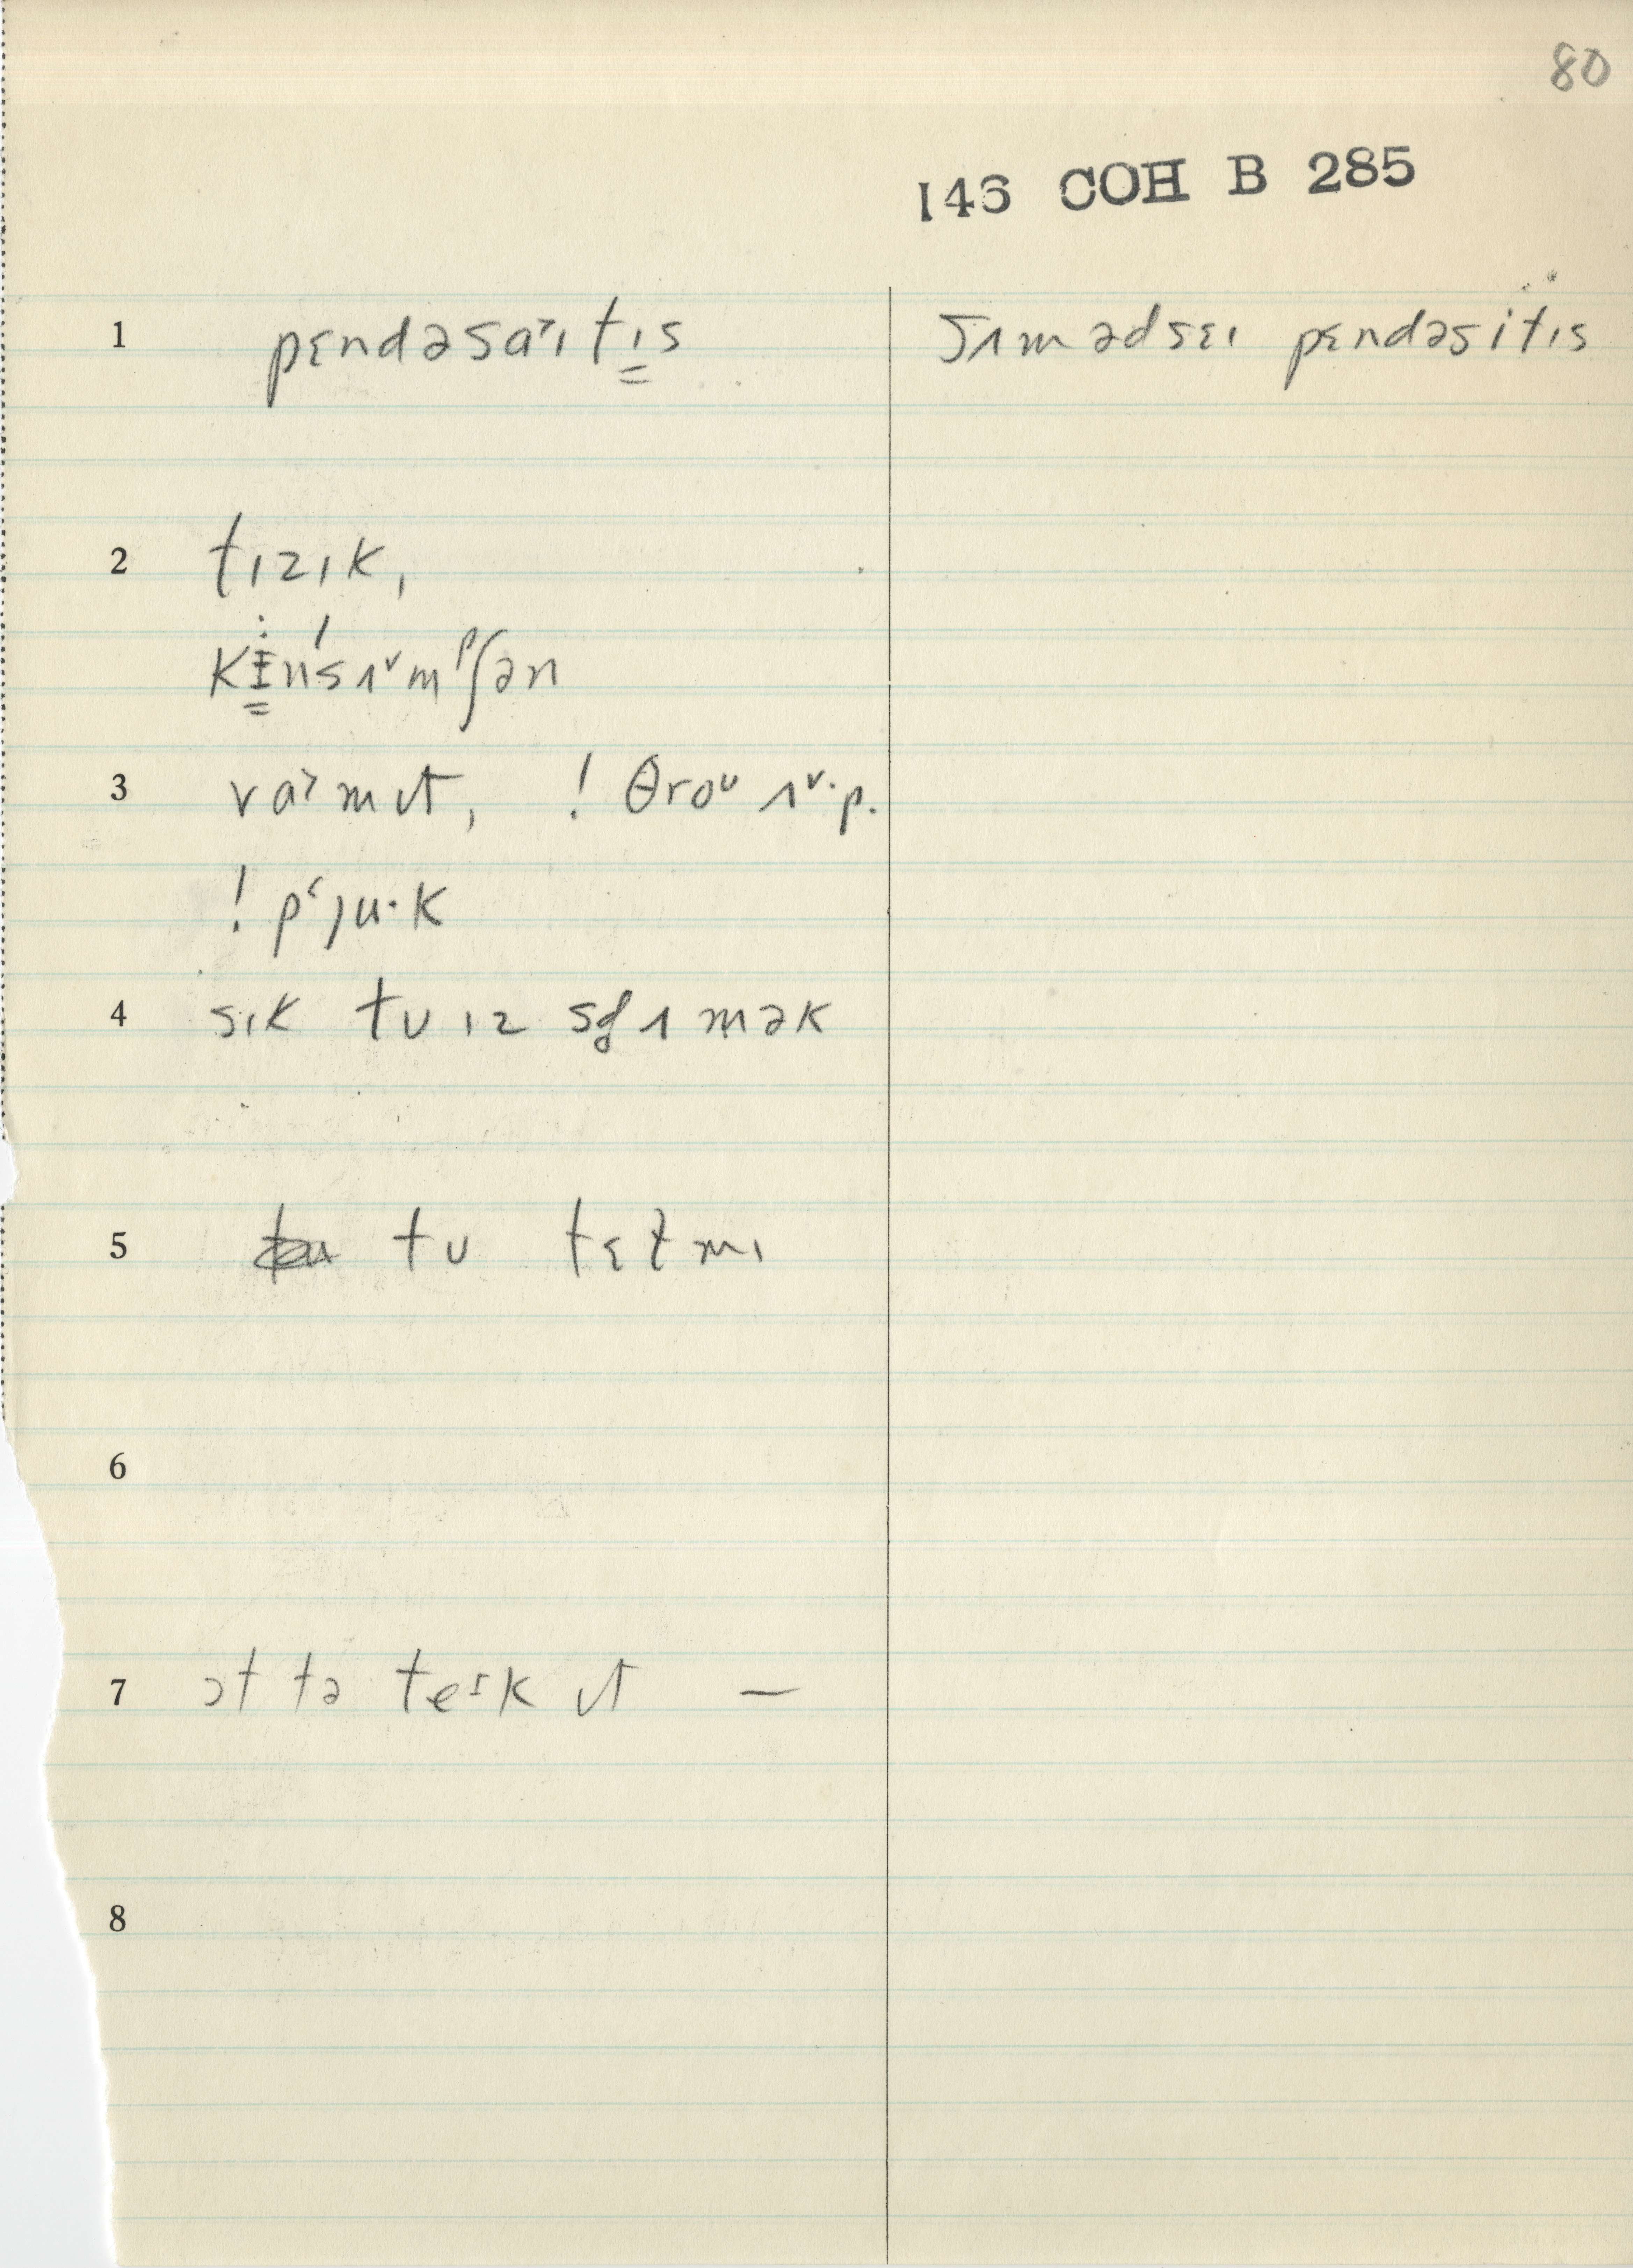 80
146 COH B 285
1 pɛndəsaɪtɪs sʌm ədsɛɪ pɛndəsitɪs
2 tɪzɪk,
kɪnsʌmpʃən
3 vɑmɪt, ! θroᴜ ʌp.
! pʿju·k
4 sɪk tʊ ɪz sʈʌmək
5 tʊ tɛɫ mɪ
6
7 ɔt tə teɪk ɪt —
8